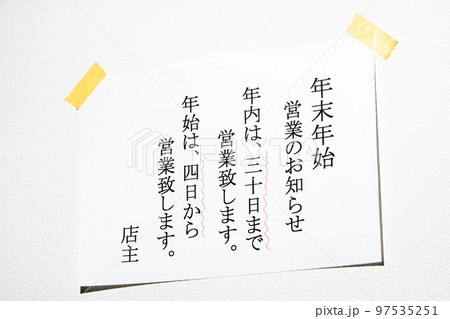 年末年始
営業のお知らせ
年内は、三十日まで
営業致します。
年始は、四日から
営業致します。
店主
PIXTA
pixta.jp - 97535251